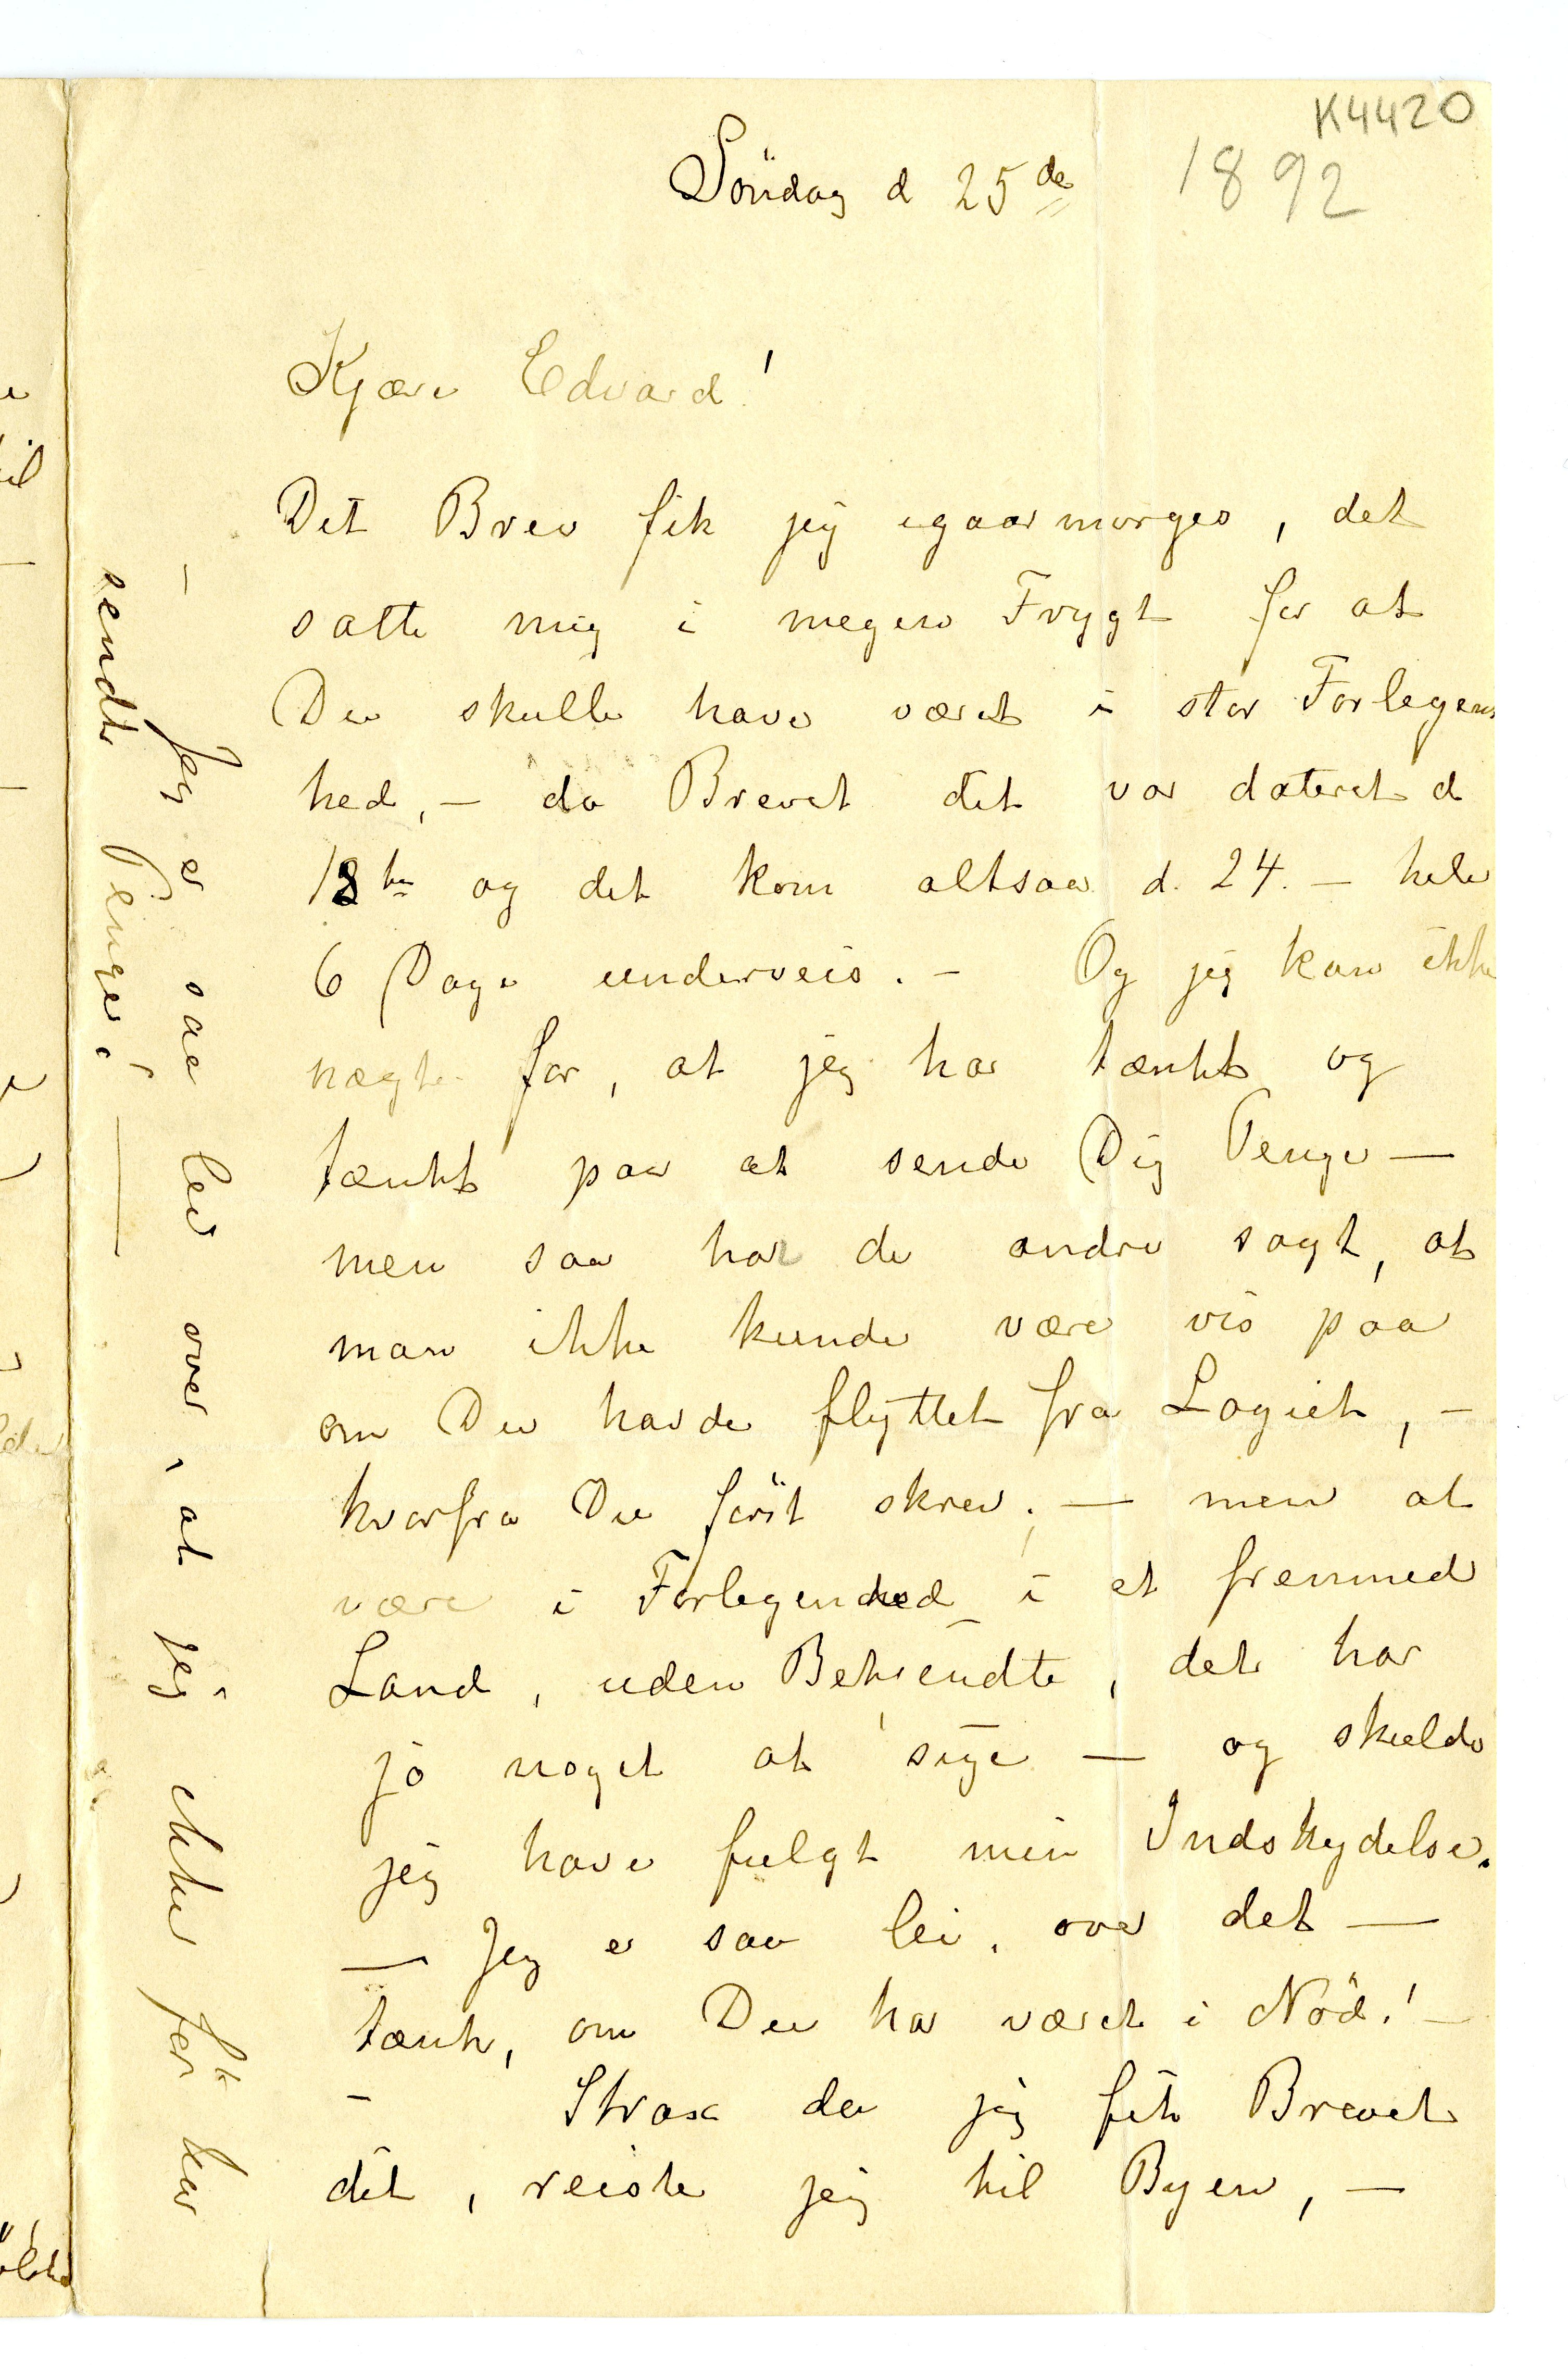 K4420
1892
Söndag d 25de
Kjære Edvard!
Dit Brev fik jeg igaarmorges, det
satte mig i megen Frygt for at
Du skulle have været i stor Forlegen
hed, – da Brevet dit var dateret d
18de og det kom altsaa d. 24. – hele
6 Dage underveis. – Og jeg kan ikke
nægte for, at jeg har tænkt og
tænkt paa at sende Dig Penge —
men saa har de andre sagt, at
man ikke kunde være vis paa
om Du havde flyttet fra Logiet, –
hvorfra Du först skrev; — men at
være i Forlegenhed i et fremmed
Land, uden Bekjendte, det har
jo noget at sige — og skulde
jeg have fulgt min Indskydelse.
— Jeg er saa lei over det —
tænk, om Du har været i Nöd! –
– Strax da jeg fik Brevet
dit, reiste jeg til Byen, —
– Jeg er saa lei over, at jeg ikke för har
sendt Penge! —